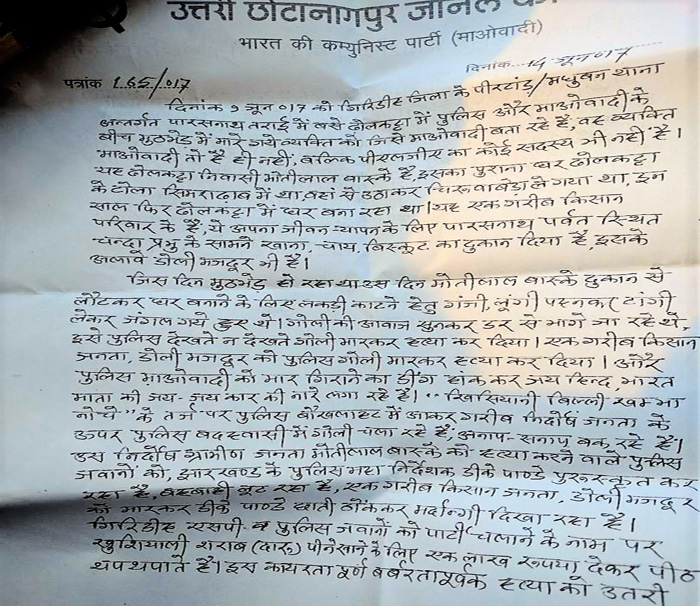 उत्तरी छोटानागपुर जोनल
भारत की कम्युनिस्ट पार्टी (माओवादी)
पत्रांक 165/017 दिनांक...14 जून 017
दिनांक 9 जून 017 को गिरिडीह जिला के पीरटांड/मधुबन थाना
अन्तर्गत पारसनाथ तराई में बसे ढोलकट्टा में पुलिस और माओवादी के
बीच मुठभेड़ में मारे गये व्यक्ति को जिसे माओवादी बता रहे हैं, वह व्यक्ति
माओवादी तो है ही नहीं, बल्कि पीएलजीए का कोई सदस्य भी नहीं है।
यह ढोलकट्टा निवासी मोतीलाल बास्के हैं, इसका पुराना घर ढोलकट्टा
के टोला सिमराढाब में था, वहां से उठाकर चिरूवाबेड़ा ले गया था, इन
साल फिर ढोलकट्टा में घर बना रहा था। यह एक गरीब किसान
परिवार के हैं, ये अपना जीवन-यापन के लिए पारसनाथ पर्वत स्थित
चन्दा प्रभु के सामने खाना, चाय, बिस्कूट का दुकान दिया है, इसके
अलावे डोली मजदूर भी हैं।
जिस दिन मुठभेड़ हो रहा था उस दिन मोतीलाल बास्के दुकान से
लौटकर घर बनाने के लिए लकड़ी काटने हेतु गंजी, लूंगी पहनकर (टांगी)
लेकर जंगल गये हुए थे। गोली की आवाज सुनकर डर से भागे जा रहे थे,
इसे पुलिस देखते न देखते गोली मारकर हत्या कर दिया। एक गरीब किसान
जनता, डोली मजदूर को पुलिस गोली मारकर हत्या कर दिया। और
पुलिस माओवादी को मार गिराने का डींग हांक कर जय हिन्द, भारत
माता की जय-जय कार की नारे लगा रहे हैं। "खिसियानी बिल्ली खम्भा
नोचे" के तर्ज पर पुलिस बौखलाहट में आकर गरीब निर्दोष जनता के
ऊपर पुलिस बदहवासी में गोली चला रहे हैं, अनाप-सनाप बक रहे हैं।
उस निर्दोष ग्रामीण जनता मोतीलाल बास्के को हत्या करने वाले पुलिस
जवानों को, झारखण्ड के पुलिस महा निर्देशक डीके पाण्डे पुरूस्कृत कर
रहा है, वाहवाही लूट रहा है, एक गरीब किसान जनता, डोली मजदूर
को मारकर डीके पाण्डे छाती ठोंककर मर्दानगी दिखा रहा है।
गिरिडीह एसपी व पुलिस जवानों को पार्टी चलाने के नाम पर
खुशियाली शराब (दारू) पीने खाने के लिए एक लाख रूपया देकर पीठ
थपथपाते हैं। इस कायरता पूर्ण बर्बरतापूर्वक हत्या को उतरी